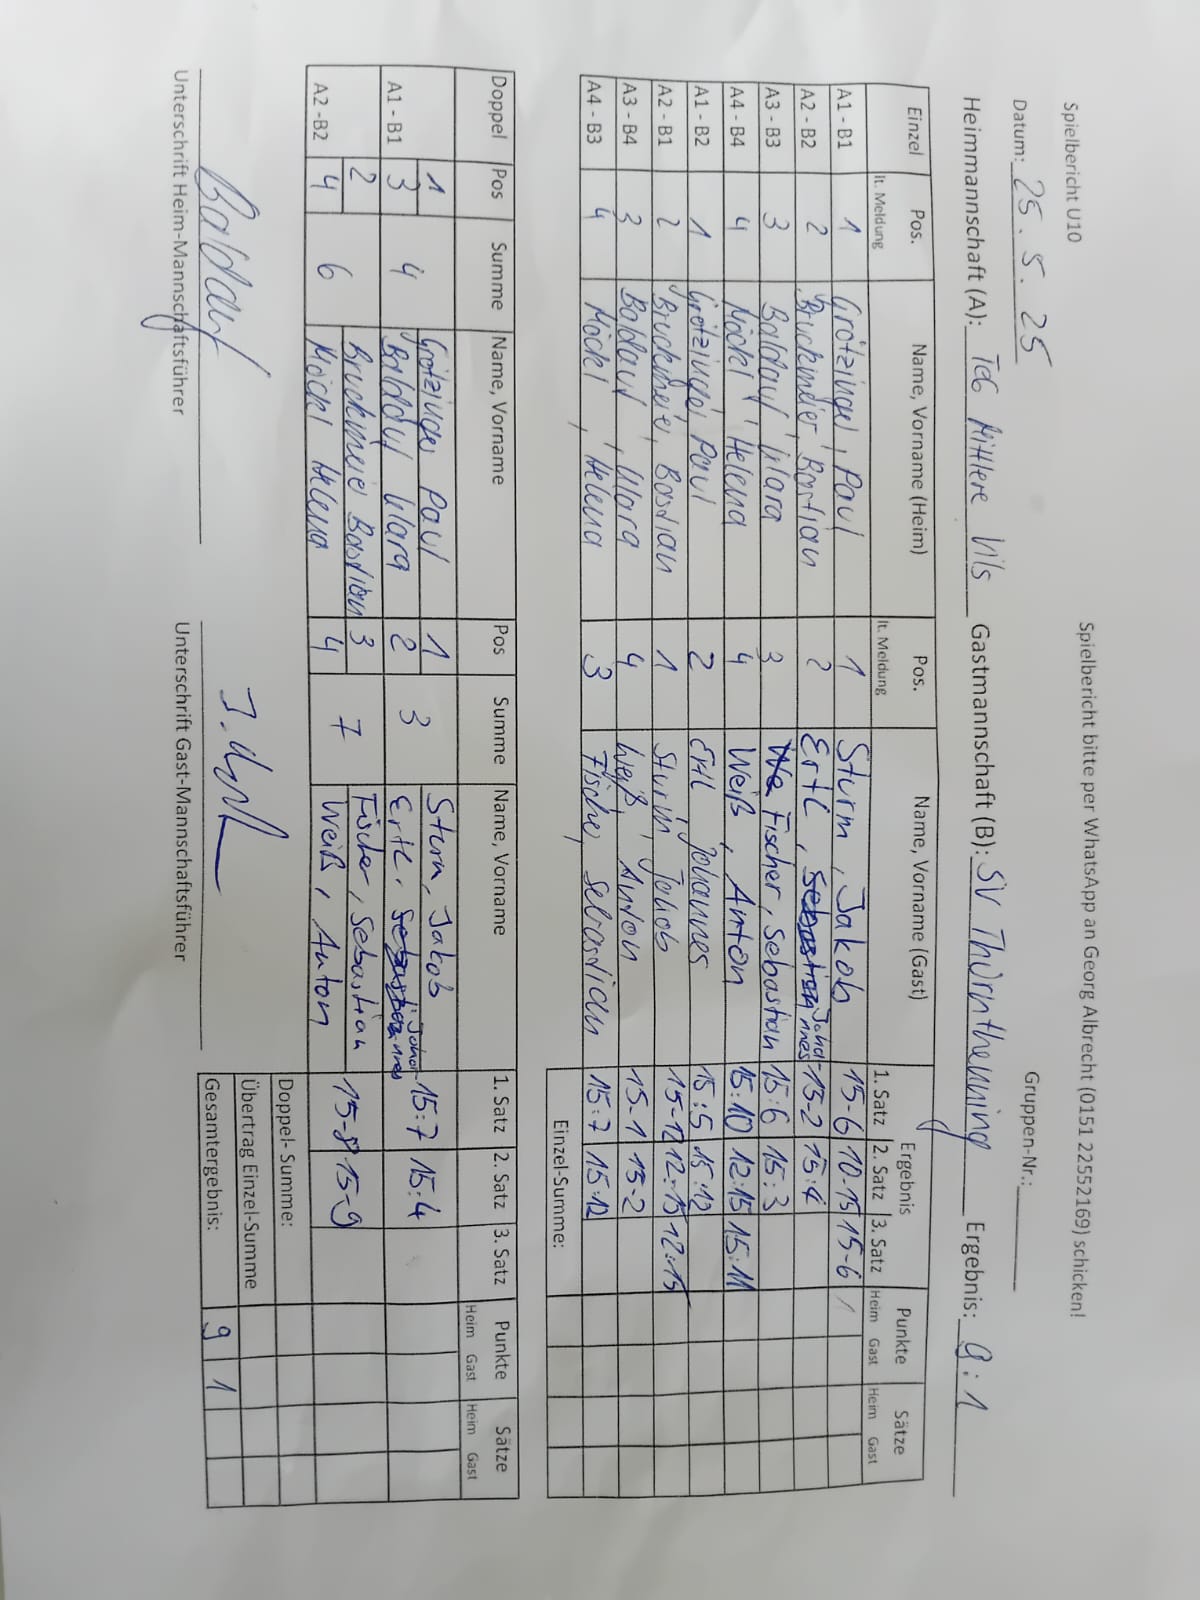 Spielbericht U10 Spielbericht bitte per WhatsApp an Georg Albrecht (0151 22552169) schicken!
Datum: 25.5.25 Gruppen-Nr.:
Heimmannschaft (A): TeG Mittlere Vils Gastmannschaft (B): SV Thürnthenning Ergebnis: 9:1
Einzel Pos. Name, Vorname (Heim) Pos. Name, Vorname (Gast) Ergebnis Punkte Sätze
lt. Meldung lt. Meldung 1. Satz 2. Satz 3. Satz Heim Gast Heim Gast
A1 - B1 1 Grötzinger, Paul 1 Sturm, Jakob 15-6 10-15 15-6 1
A2 - B2 2 Bruckmeier, Bastian 2 Ertl, Johannes 15-2 15:4
A3 - B3 3 Baldauf, Klara 3 Fischer, Sebastian 15:6 15:3
A4 - B4 4 Möckl, Helena 4 Weiß, Anton 15:10 12:15 15:11
A1 - B2 1 Grötzinger Paul 2 Ertl Johannes 15:5 15:12
A2 - B1 2 Bruckmeie, Bastian 1 Sturm, Jakob 15-12 12:15 12:15
A3 - B4 3 Baldauf, Klara 4 Weiß, Anton 15-1 15-2
A4 - B3 4 Möckl, Helena 3 Fische, Sebastian 15:7 15:12
Einzel-Summe:
Doppel Pos Summe Name, Vorname Pos Summe Name, Vorname 1. Satz 2. Satz 3. Satz Punkte Sätze
Heim Gast Heim Gast
1 Grötzinger Paul 1 Sturm, Jakob
A1 - B1 3 4 Baldauf Klara 2 3 Ertl, Johannes 15:7 15:4
2 Bruckmeie Bastian 3 Fischer, Sebastian
A2 -B2 4 6 Möckl Helena 4 7 Weiß, Anton 15-8 15-9
Doppel- Summe:
Übertrag Einzel-Summe
Gesamtergebnis: 9 1
Baldauf
Unterschrift Heim-Mannschaftsführer Unterschrift Gast-Mannschaftsführer